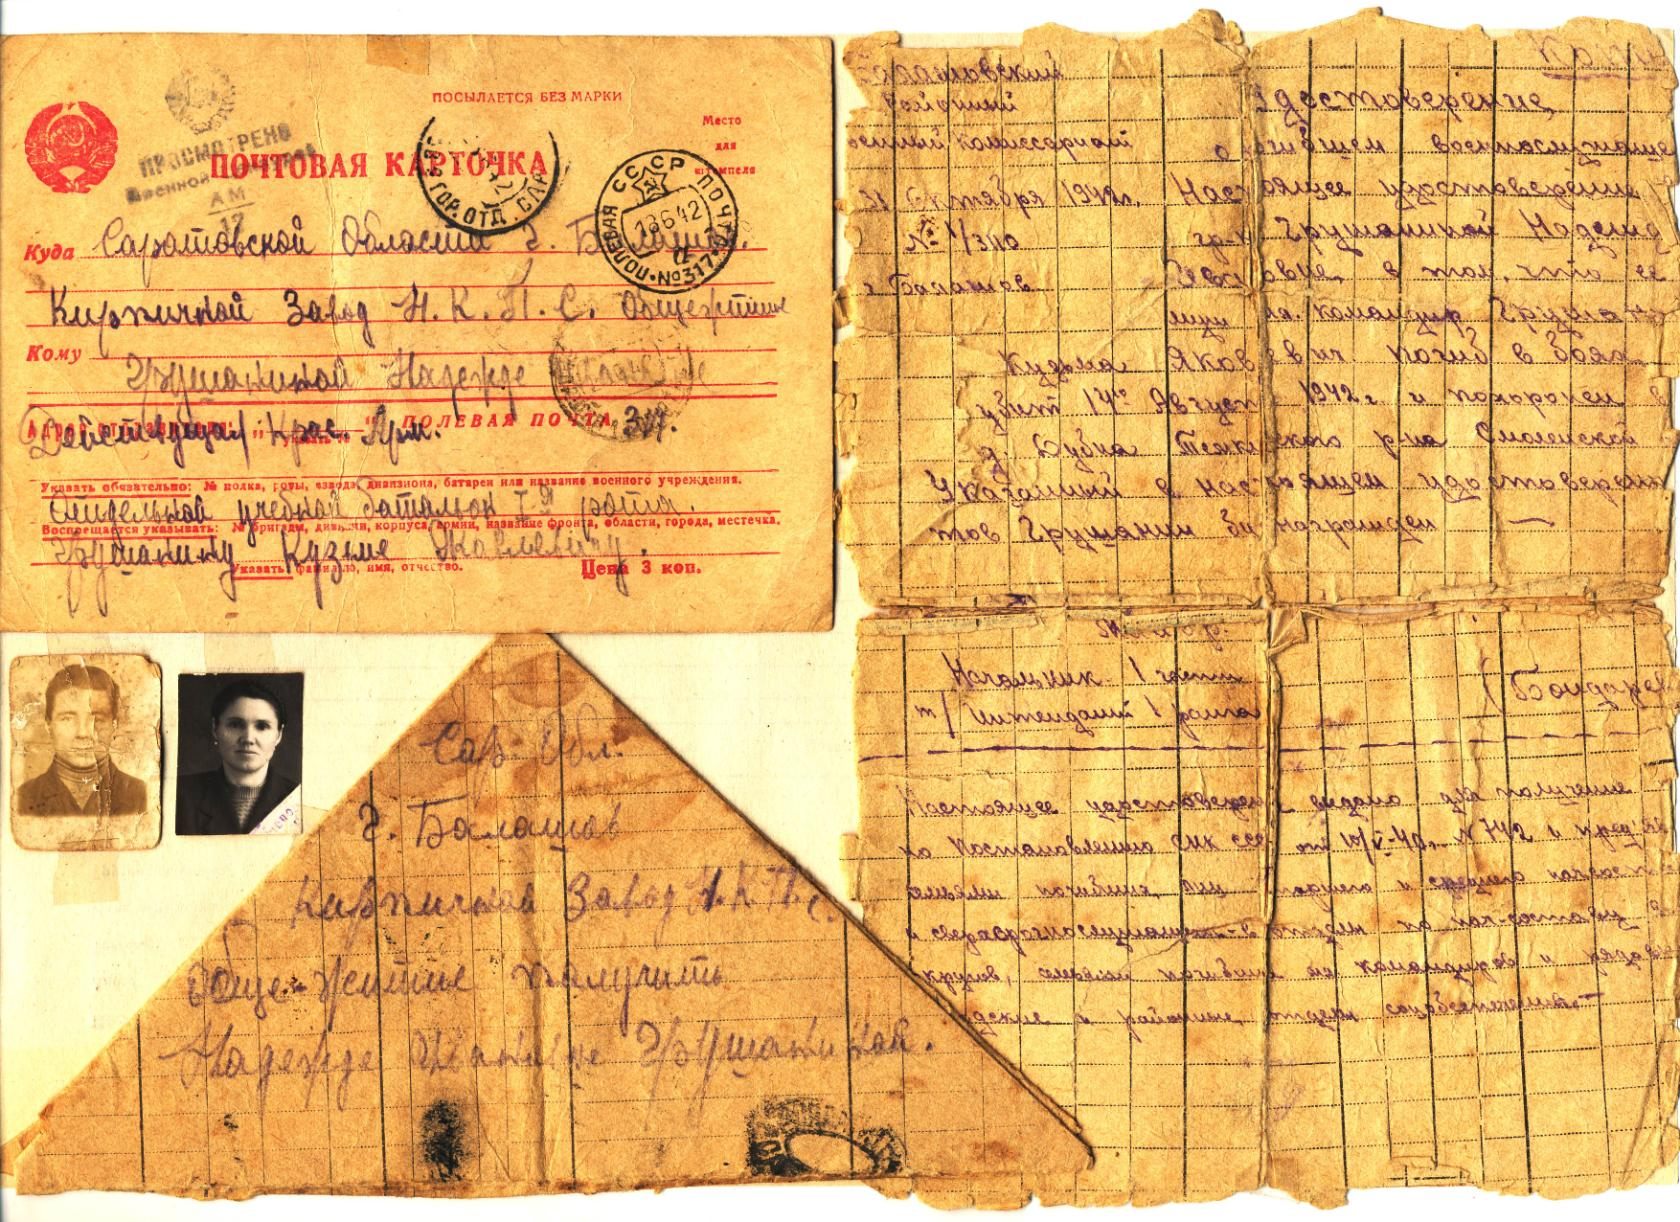 ПОСЫЛАЕТСЯ БЕЗ МАРКИ
Место
для
штемпеля
ПРОСМОТРЕНО
Военной
ПОЧТОВАЯ КАРТОЧКА
ГОР. ОТД. САР
СССР ПОЛЕВАЯ ПОЧТА №317
18 6 42
Куда Саратовской Области г. Балашов.
Кирпичной Завод Н.К.П.С. Общежитие
Кому
Грушаниной Надежде
Адрес отправителя: ПОЛЕВАЯ ПОЧТА 317.
Действующая Крас. Арм.
Указать обязательно: № полка, роты, взвода, дивизиона, батареи или название военного учреждения.
Отдельной учебной баталион I я рота.
Воспрещается указывать: № бригады, дивизии, корпуса, армии, название фронта, области, города, местечка.
Грушанину Кузьме Яковлевичу.
Указать фамилию, имя, отчество. Цена 3 коп.
Сар-Обл.
г. Балашов
Кирпичной Завод Н.К.П.С.
Обще-житие получить
Надежде Иванивне Грушаниной.
Копия
Балашовский
Районный
Военный комиссариат
31 Октября 1942г.
№ 1/3110
г Балашов
Удостоверение
о погибшем военнослужаще
Настоящее удостоверение
гр-ке Грушаниной Надежд
Ивановне, в том, что ее
муж мл. командир Грушанин
Кузьма Яковлевич погиб в боях
убит 14го Августа 1942г и похоронен в
д. Дубна Темкинского р-на Смоленской
Указанный в настоящем удостоверении
тов Грушанин был награжден —
Начальник 1 части
т/ Интендант 1 ранга (Бондарев
Настоящее удостоверение выдано для получения
по Постановлению СНК ССР от 10/V-40г N 742 и пред
семьями погибших лиц старшего и среднего начсост
и сверхсрочнослужащ в отделы по нач-составу в
округов, семьями погибших мл командиров и рядов
районные отделы собобеспечения.